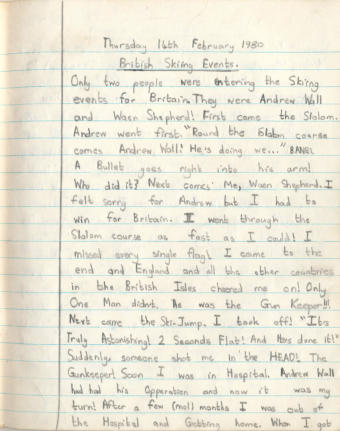 Thursday 14th February 1980
British Skiing Events.
Only two people were entering the Skiing
events for Britain. They were Andrew Wall
and Waen Shepherd! First came the Slalom.
Andrew went first. "Round the Slalom course
comes Andrew Wall! He's doing we..." BANG!
A Bullet goes right into his arm!
Who did it? Next comes Me, Waen Shepherd. I
felt sorry for Andrew but I had to
win for Britain. I went through the
Slalom course as fast as I could! I
missed every single flag! I came to the
end and England and all the other countries
in the British Isles cheered me on! Only
One Man didnt. He was the Gun Keeper!!!
Next came the Ski-Jump. I took off! "Its
Truly Astonishing! 2 Seconds Flat! And He's done it!"
Suddenly, someone shot me in the HEAD! The
Gunkeeper! Soon I was in Hospital. Andrew Wall
had had his Opperation and now it was my
turn! After a few (mol) months I was out of
the Hospital and Gobbing home. When I got